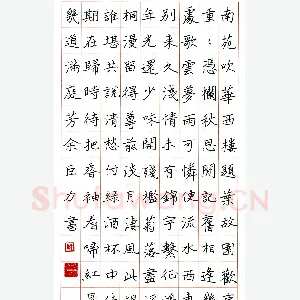 南苑吹華西樓題葉故園歡
重：憑欄秋思閒記舊相逢
處歌雲夢雨可憐便流水西
別來久淺情未有錦字繫征
年光還少味開殘檻菊落盡
桐漫留得尊前淡月淒風此
誰堪共說清愁付綠酒杯中
期在歸時待把香袖看啼紅
幾道滿庭芳 余巨力書